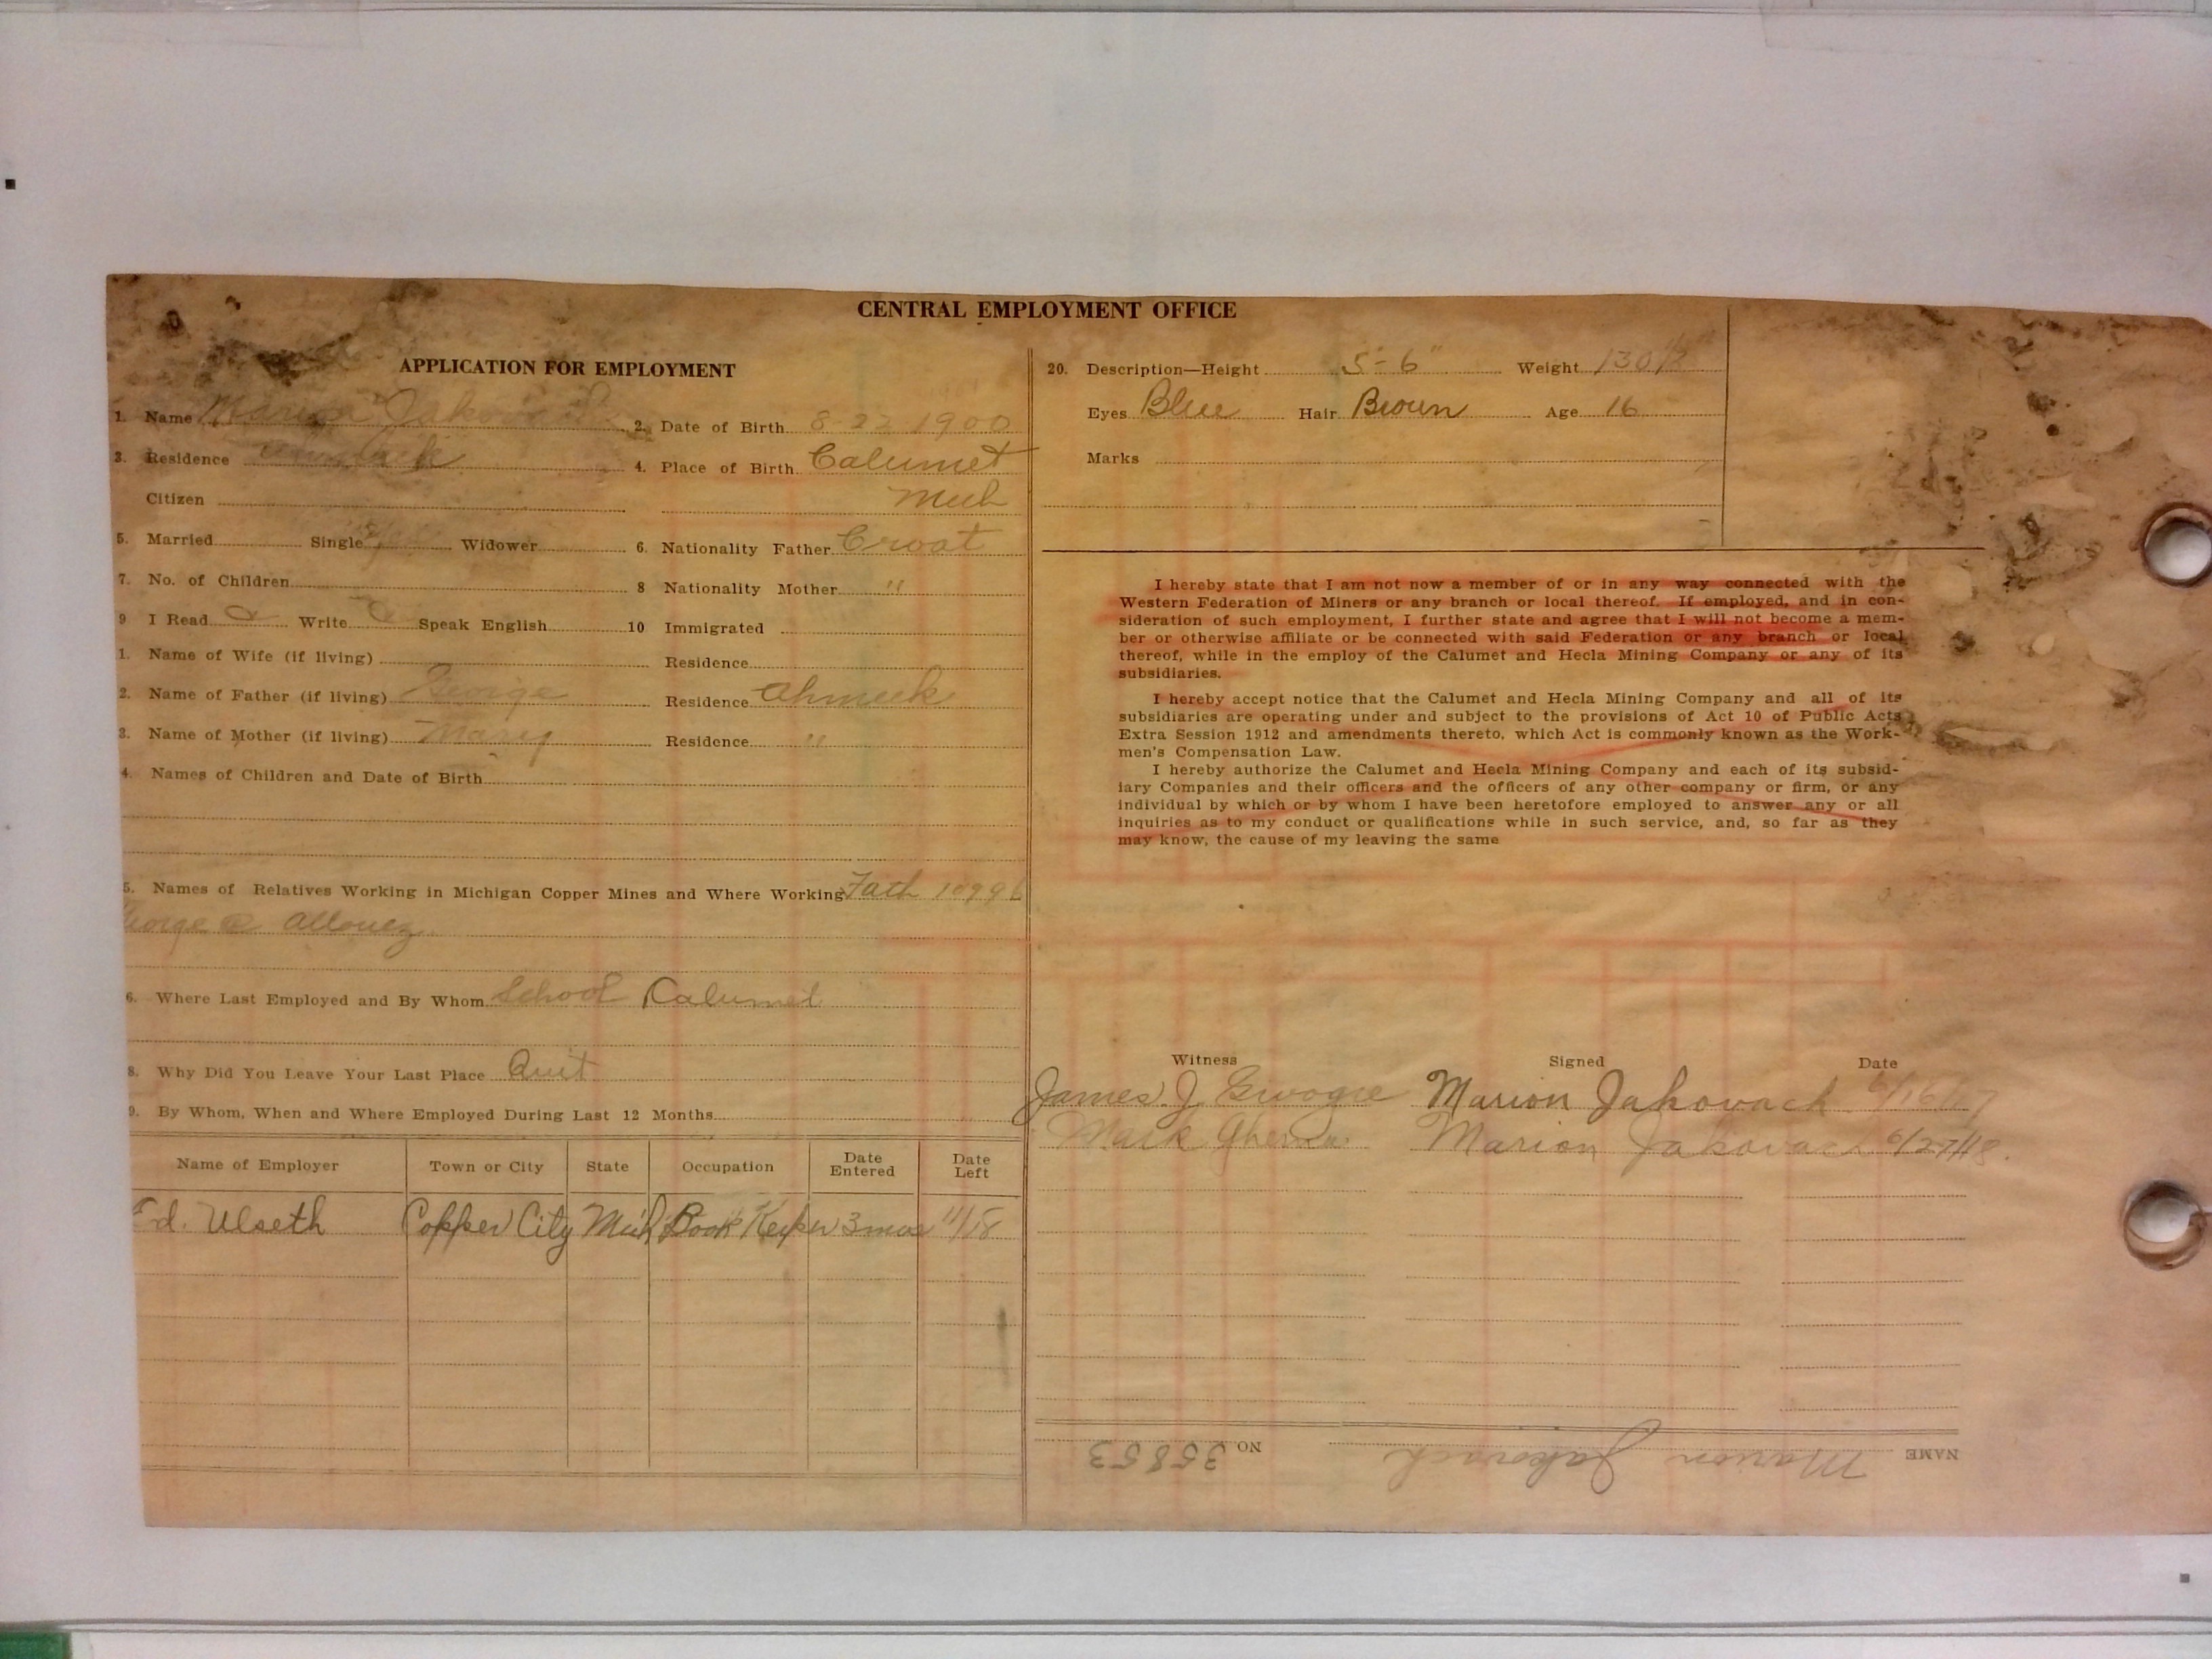 CENTRAL EMPLOYMENT OFFICE
APPLICATION FOR EMPLOYMENT
1. Name Marion Jakovach 2. Date of Birth 8-22 1900
3. Residence Ahmeek 4. Place of Birth Calumet
Citizen Mich
5. Married Single Widower 6. Nationality Father Croat
7. No. of Children 8 Nationality Mother "
9 I Read Write Speak English 10 Immigrated
1. Name of Wife (if living) Residence
2. Name of Father (if living) George Residence Ahmeek
3. Name of Mother (if living) Mary Residence "
4. Names of Children and Date of Birth
5. Names of Relatives Working in Michigan Copper Mines and Where Working Fath 10996
George @ Allouez
6. Where Last Employed and By Whom School Calumet
8. Why Did You Leave Your Last Place Quit
9. By Whom, When and Where Employed During Last 12 Months
Name of Employer Town or City State Occupation Date Entered Date Left
Ed. Ulseth Copper City Mich Book Keeper 3 mos 11/18
20. Description—Height 5'-6" Weight 130½
Eyes Blue Hair Brown Age 16
Marks
I hereby state that I am not now a member of or in any way connected with the
Western Federation of Miners or any branch or local thereof. If employed, and in con-
sideration of such employment, I further state and agree that I will not become a mem-
ber or otherwise affiliate or be connected with said Federation or any branch or local
thereof, while in the employ of the Calumet and Hecla Mining Company or any of its
subsidiaries.
I hereby accept notice that the Calumet and Hecla Mining Company and all of its
subsidiaries are operating under and subject to the provisions of Act 10 of Public Acts
Extra Session 1912 and amendments thereto, which Act is commonly known as the Work-
men's Compensation Law.
I hereby authorize the Calumet and Hecla Mining Company and each of its subsid-
iary Companies and their officers and the officers of any other company or firm, or any
individual by which or by whom I have been heretofore employed to answer any or all
inquiries as to my conduct or qualifications while in such service, and, so far as they
may know, the cause of my leaving the same
Witness Signed Date
James J. Marion Jakovach 6/16/17
Mark Marion Jakovach 6/27/18.
NAME Marion Jakovach NO 35853